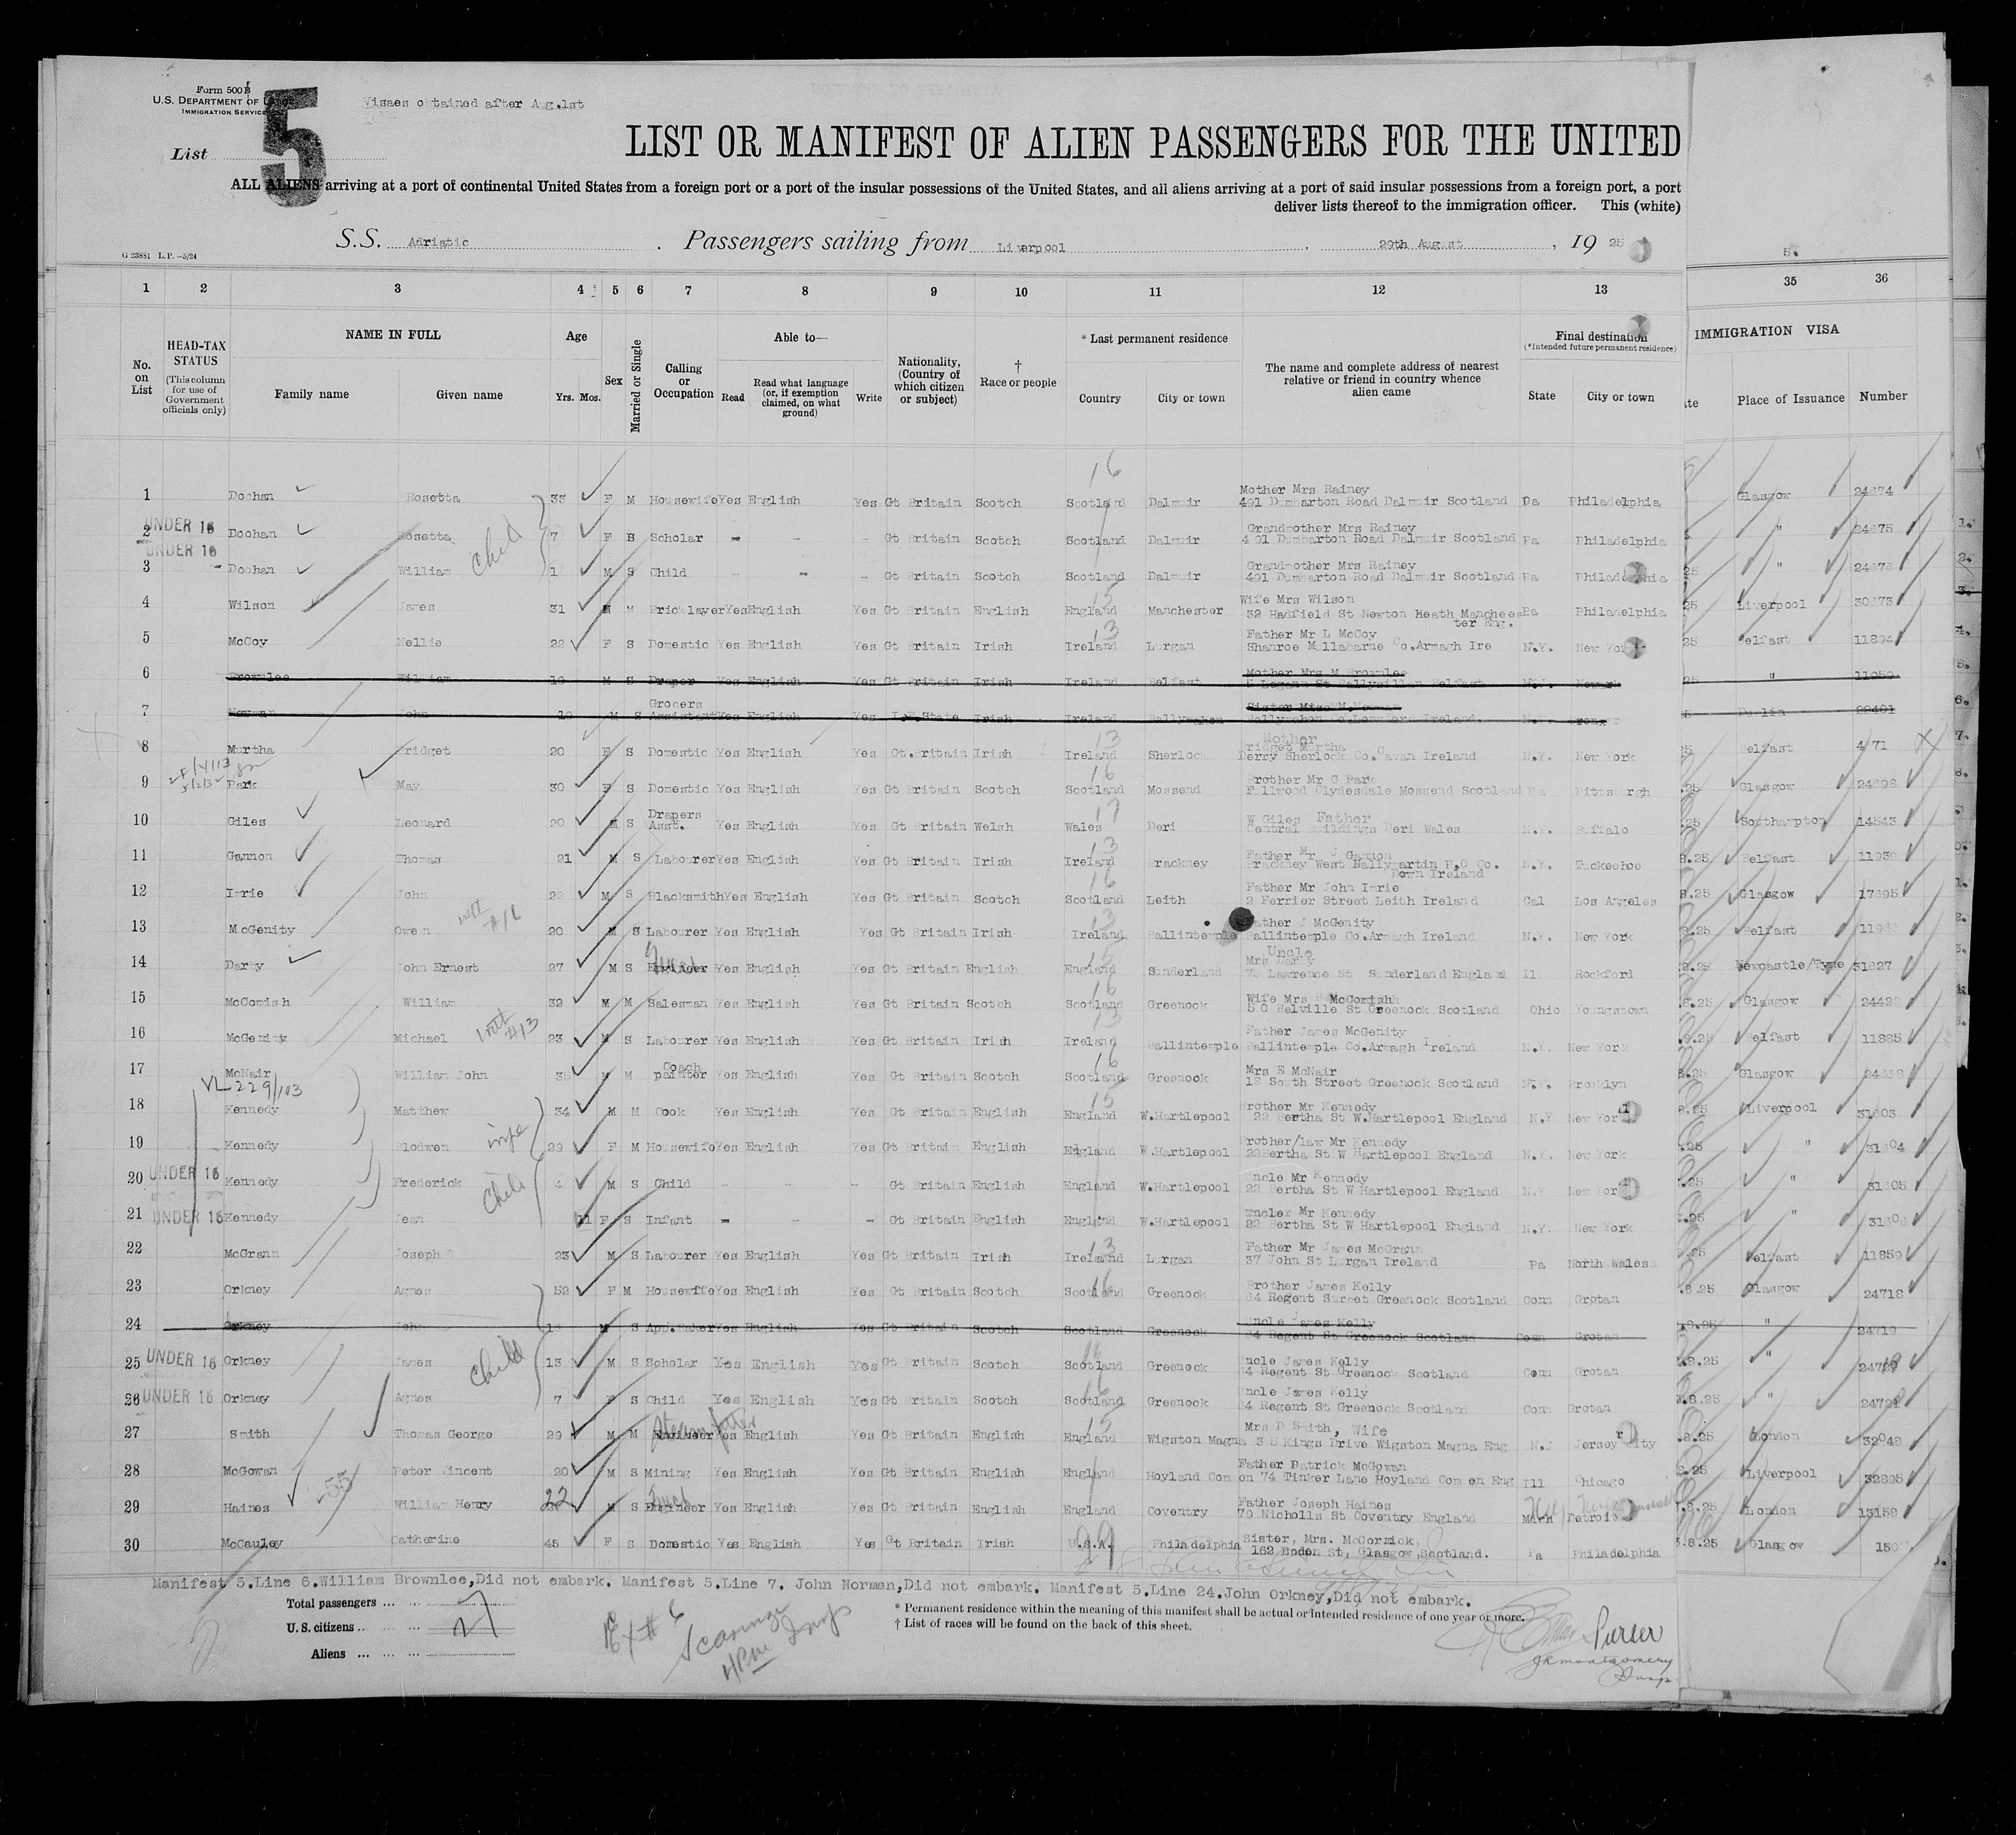 Form 500 B
U.S. DEPARTMENT OF LABOR
IMMIGRATION SERVICE
Visaes obtained after Aug.1st
List 5
LIST OR MANIFEST OF ALIEN PASSENGERS FOR THE UNITED
ALL ALIENS arriving at a port of continental United States from a foreign port or a port of the insular possessions of the United States, and all aliens arriving at a port of said insular possessions from a foreign port, a port
deliver lists thereof to the immigration officer. This (white)
S.S. Adriatic . Passengers sailing from Liverpool , 29th August , 19 25
G 23881 L.P.—5/24
5.
1 2 3 4 5 6 7 8 9 10 11 12 13 35 36
No. on List
HEAD-TAX STATUS (This column for use of Government officials only)
NAME IN FULL Family name Given name
Age Yrs. Mos.
Sex
Married or Single
Calling or Occupation
Able to— Read Read what language (or, if exemption claimed, on what ground) Write
Nationality, (Country of which citizen or subject)
† Race or people
* Last permanent residence Country City or town
The name and complete address of nearest relative or friend in country whence alien came
Final destination (*Intended future permanent residence) State City or town
IMMIGRATION VISA Place of Issuance Number
1 Doohan Rosetta 33 F M Housewife Yes English Yes Gt Britain Scotch Scotland 16 Dalmuir Mother Mrs Rainey 491 Dumbarton Road Dalmuir Scotland Pa Philadelphia Glasgow 24674
2 UNDER 16 Doohan Rosetta Child 7 F S Scholar - - - Gt Britain Scotch Scotland Dalmuir Grandmother Mrs Rainey 491 Dumbarton Road Dalmuir Scotland Pa Philadelphia " 24675
3 UNDER 16 Doohan William 1 M S Child - - - Gt Britain Scotch Scotland Dalmuir Grandmother Mrs Rainey 491 Dumbarton Road Dalmuir Scotland Pa Philadelphia 25 " 24676
4 Wilson James 31 M M Bricklayer Yes English Yes Gt Britain English England 15 Manchester Wife Mrs Wilson 32 Hadfield St Newton Heath Manchester Eng. Pa Philadelphia 25 Liverpool 30673
5 McCoy Nellie 22 F S Domestic Yes English Yes Gt Britain Irish Ireland 13 Lurgan Father Mr L McCoy Shanroe Mullabarne Co.Armagh Ire N.Y. New York 25 Belfast 11894
6 Brownlee William 19 M S Draper Yes English Yes Gt Britain Irish Ireland Belfast Mother Mrs M Brownlee Newark 25 "
7 Norman John 19 M S Grocers Assistant Yes English Yes I.F.State Irish Ireland Ballymahon Dublin
8 Murtha Bridget 20 F S Domestic Yes English Yes Gt.Britain Irish Ireland 13 Sherlock Mother Bridget Murtha Derry Sherlock Co.Cavan Ireland N.Y. New York 25 Belfast
9 Park May 30 F S Domestic Yes English Yes Gt Britain Scotch Scotland 16 Mossend Brother Mr G Park Fellwood Clydesdale Mossend Scotland Pa Pittsburgh .25 Glasgow 24698
10 Giles Leonard 20 M S Drapers Asst. Yes English Yes Gt Britain Welsh Wales 17 Deri W Giles Father Central Buildings Deri Wales N.Y. Buffalo .25 Southampton 14543
11 Gannon Thomas 21 M S Labourer Yes English Yes Gt Britain Irish Ireland 13 Brackney Father Mr J Gannon Brackney West Ballymartin P.O Co. Down Ireland N.Y. Tuckeehoe 8.25 Belfast 11939
12 Imrie John 22 M S Blacksmith Yes English Yes Gt Britain Scotch Scotland 16 Leith Father Mr John Imrie 2 Ferrier Street Leith Ireland Cal Los Angeles 8.25 Glasgow 17695
13 McGenity Owen 20 M S Labourer Yes English Yes Gt Britain Irish Ireland 13 Ballintemple Father J McGenity Ballintemple Co.Armagh Ireland N.Y. New York 8.25 Belfast
14 Darby John Ernest 27 M S Engineer Yes English Yes Gt Britain English England 15 Sunderland Uncle Mrs Darby 75 Lawrence St Sunderland England Ill Rockford 8.25 Newcastle/Tyne 31627
15 McComish William 32 M M Salesman Yes English Yes Gt Britain Scotch Scotland 16 Greenock Wife Mrs McComish 50 Belville St Greenock Scotland Ohio Youngstown .8.25 Glasgow
16 McGenity Michael 23 M S Labourer Yes English Yes Gt Britain Irish Ireland 13 Ballintemple Father James McGenity Ballintemple Co.Armagh Ireland N.Y. New York .8.25 Belfast 11885
17 McNair William John 35 M M Coach painter Yes English Yes Gt Britain Scotch Scotland 16 Greenock Mrs E McNair 18 South Street Greenock Scotland N.Y. Brooklyn 8.25 Glasgow
VL 229/103
18 Kennedy Matthew 34 M M Cook Yes English Yes Gt Britain English England 15 W.Hartlepool Brother Mr Kennedy 22 Bertha St W.Hartlepool England N.Y New York 8.25 Liverpool 31603
19 Kennedy Blodwen wife 29 F M Housewife Yes English Yes Gt Britain English England W.Hartlepool Brother/law Mr Kennedy 22Bertha St W Hartlepool England N.Y. New York .25 " 31604
20 UNDER 16 Kennedy Frederick Child 4 M S Child - - - Gt Britain English England W.Hartlepool Uncle Mr Kennedy 22 Bertha St W Hartlepool England N.Y New York .25 " 31605
21 UNDER 16 Kennedy Jean 11 F S Infant - - - Gt Britain English England W.Hartlepool Uncle Mr Kennedy 22 Bertha St W Hartlepool England N.Y. New York .25 " 31606
22 McGrann Joseph 23 M S Labourer Yes English Yes Gt Britain Irish Ireland 13 Lurgan Father Mr James McGrann 37 John St Lurgan Ireland Pa North Wales .25 Belfast 11859
23 Orkney Agnes 52 F M Housewife Yes English Yes Gt Britain Scotch Scotland 16 Greenock Brother James Kelly 84 Regent Street Greenock Scotland Conn Grotan .8.25 Glasgow 24718
24 Orkney John M S App.Baker Yes English Yes Gt Britain Scotch Scotland Greenock Uncle James Kelly 84 Regent St Greenock Scotland Conn Grotan .8.25 " 24719
25 UNDER 16 Orkney James Child 13 M S Scholar Yes English Yes Gt Britain Scotch Scotland 16 Greenock Uncle James Kelly 84 Regent St Greenock Scotland Conn Grotan .8.25 "
26 UNDER 16 Orkney Agnes 7 F S Child Yes English Yes Gt Britain Scotch Scotland Greenock Uncle James Kelly 84 Regent St Greenock Scotland Conn Grotan .8.25 "
27 Smith Thomas George 29 M M Steam fitter Yes English Yes Gt Britain English England 15 Wigston Magna Mrs D Smith, Wife 35 Kings Drive Wigston Magna Eng N.J Jersey City .8.25 London 32048
28 McGowan Peter Vincent 20 M S Mining Yes English Yes Gt Britain English England Hoyland Common Father Patrick McGowan 74 Tinker Lane Hoyland Com on Eng Ill Chicago 8.25 Liverpool 32895
29 Haines William Henry 22 M S Engineer Yes English Yes Gt Britain English England Coventry Father Joseph Haines 70 Nicholls St Coventry England Mich Detroit .8.25 London 13158
30 McCauley Catherine 45 F S Domestic Yes English Yes Gt Britain Irish U.S.A. 99 Philadelphia Sister, Mrs. McCormick, 162 Boden St, Glasgow,Scotland. Pa Philadelphia .8.25 Glasgow
Manifest 5.Line 6.William Brownlee,Did not embark. Manifest 5.Line 7. John Norman,Did not embark. Manifest 5.Line 24.John Orkney,Did not embark.
Total passengers ... ...
U.S. citizens ... ... 27
Aliens ... ... ...
* Permanent residence within the meaning of this manifest shall be actual or intended residence of one year or more.
† List of races will be found on the back of this sheet.
Purser
JRMontgomery
Insp